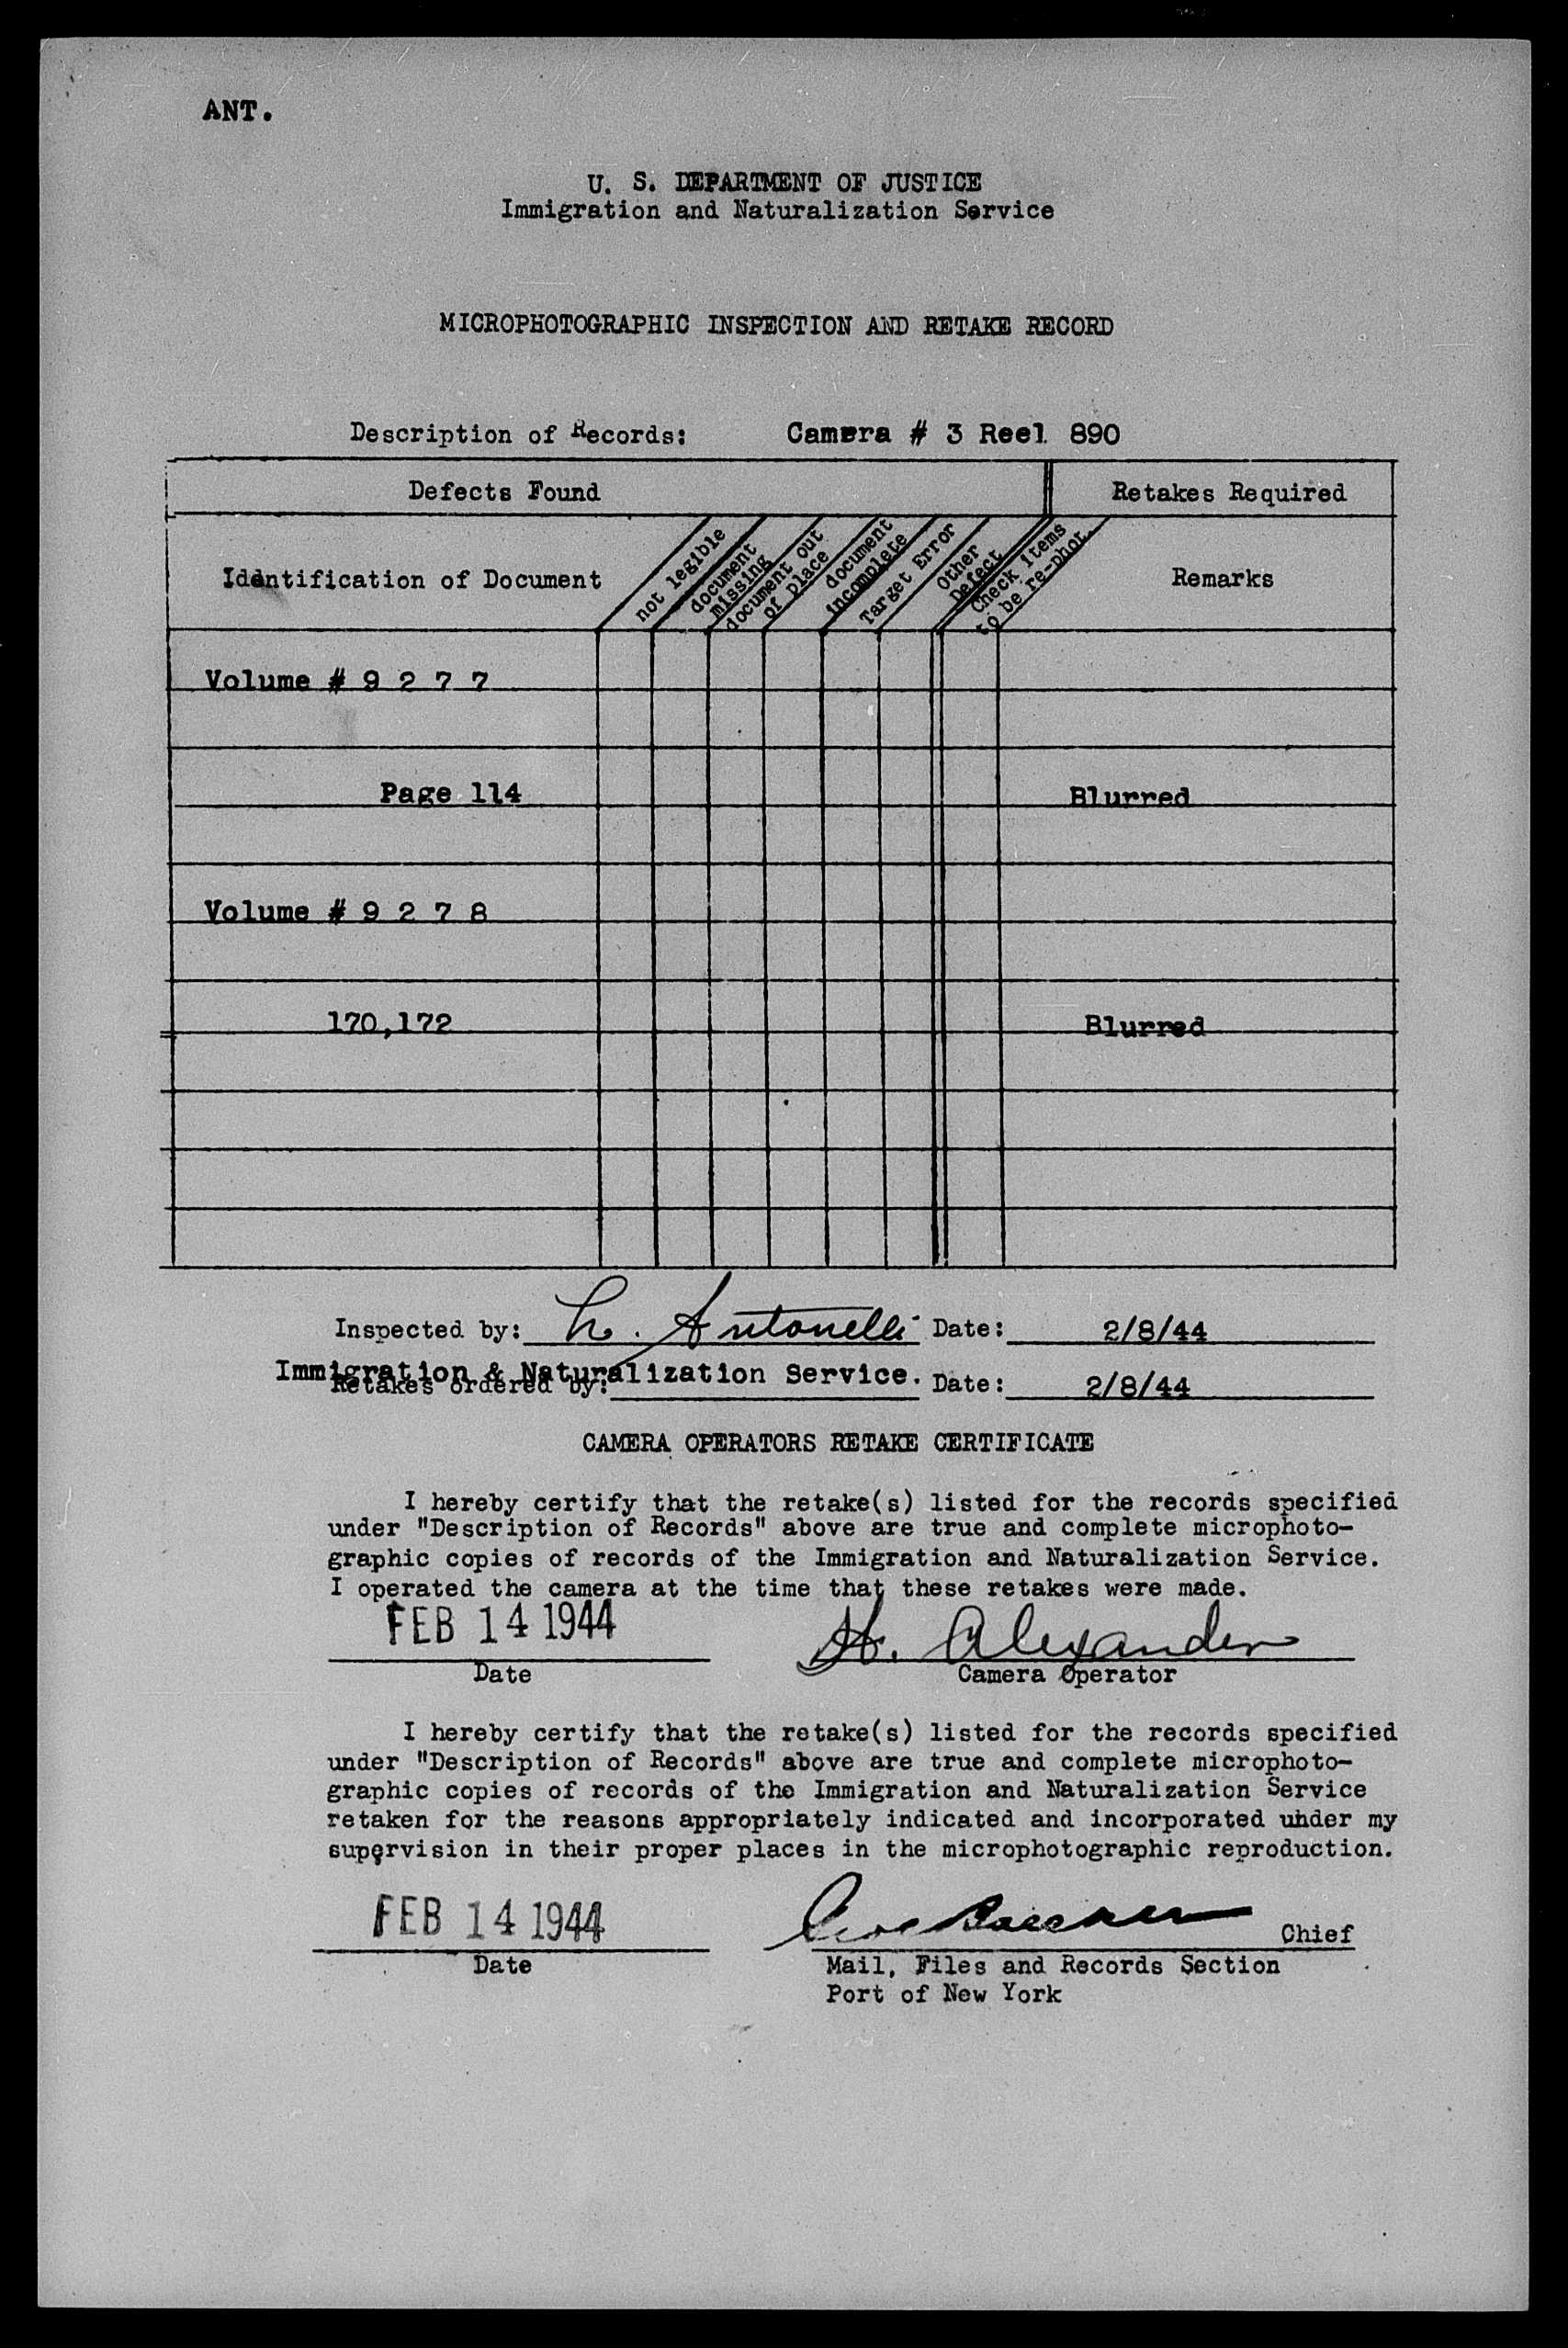 ANT.
U. S. DEPARTMENT OF JUSTICE
Immigration and Naturalization Service
MICROPHOTOGRAPHIC INSPECTION AND RETAKE RECORD
Description of Records: Camera # 3 Reel 890
Defects Found Retakes Required
Identification of Document
not legible
document missing
document out of place
document incomplete
Target Error
Other Defect
Check items to be re-phot.
Remarks
Volume # 9 2 7 7
Page 114 Blurred
Volume # 9 2 7 8
170,172 Blurred
Inspected by: L. Antonelli Date: 2/8/44
Immigration & Naturalization Service.
Retakes ordered by: Date: 2/8/44
CAMERA OPERATORS RETAKE CERTIFICATE
I hereby certify that the retake(s) listed for the records specified
under "Description of Records" above are true and complete microphoto-
graphic copies of records of the Immigration and Naturalization Service.
I operated the camera at the time that these retakes were made.
FEB 14 1944 H. Alexander
Date Camera Operator
I hereby certify that the retake(s) listed for the records specified
under "Description of Records" above are true and complete microphoto-
graphic copies of records of the Immigration and Naturalization Service
retaken for the reasons appropriately indicated and incorporated under my
supervision in their proper places in the microphotographic reproduction.
FEB 14 1944 Chief
Date Mail, Files and Records Section
Port of New York